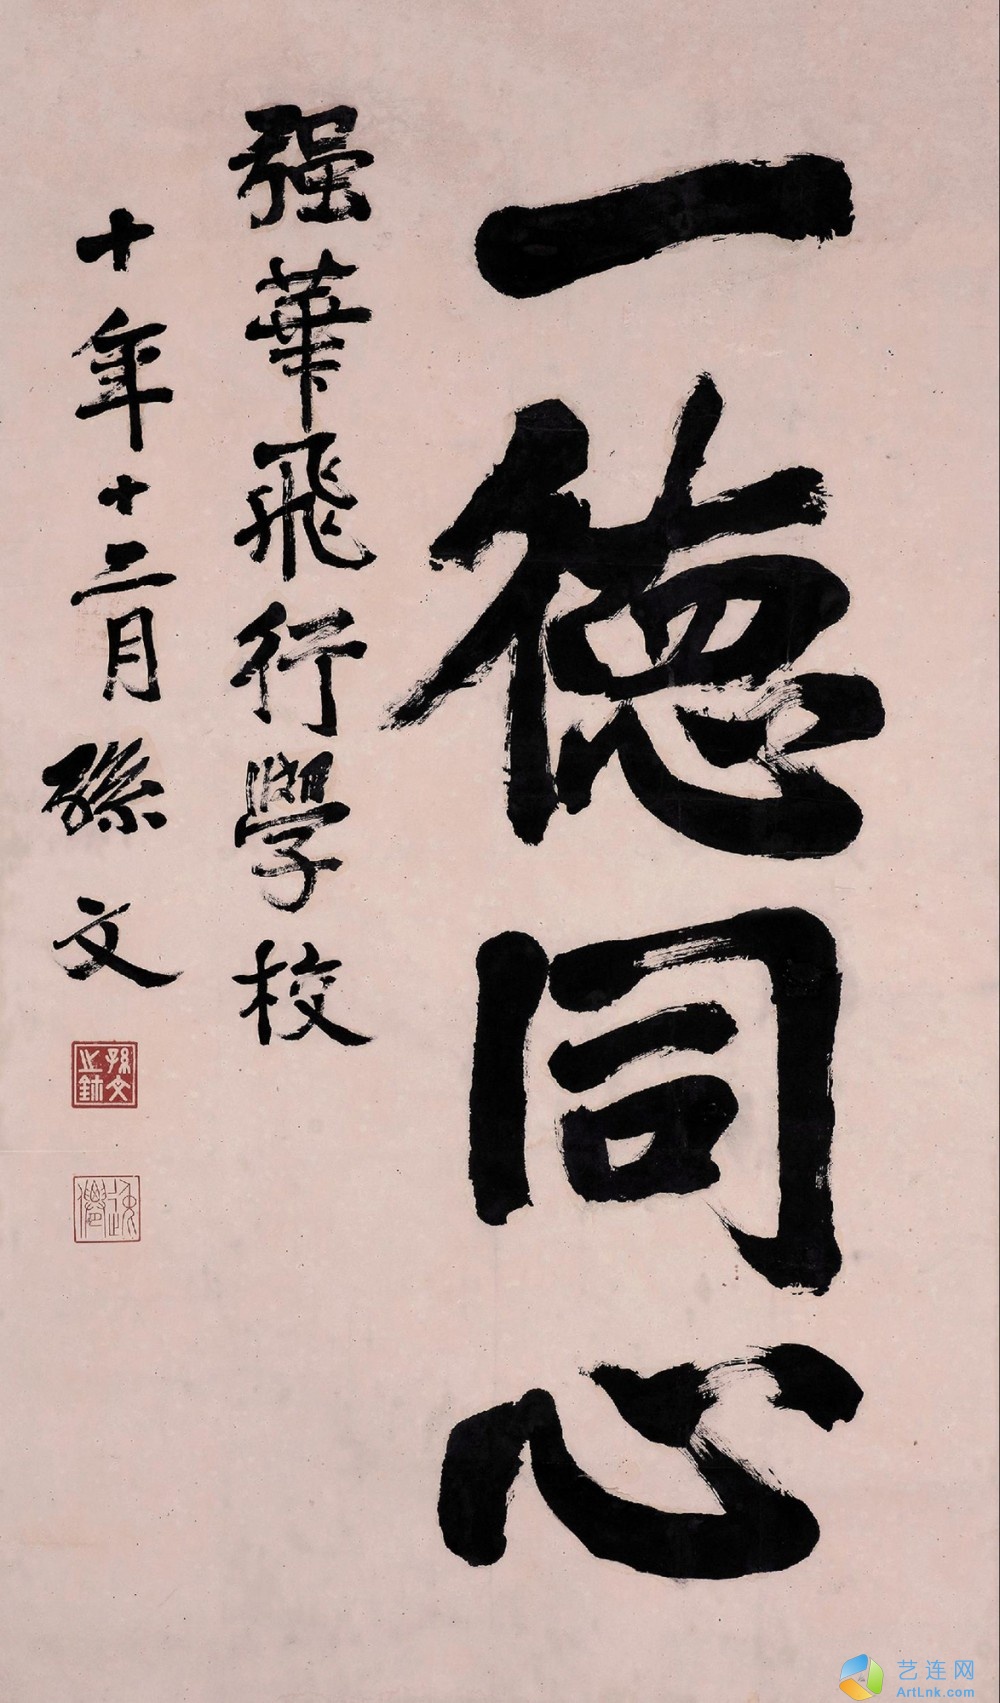 一德同心
强華飛行學校
十年十二月 孫文
孫文之鉨
艺连网
ArtLnk.com